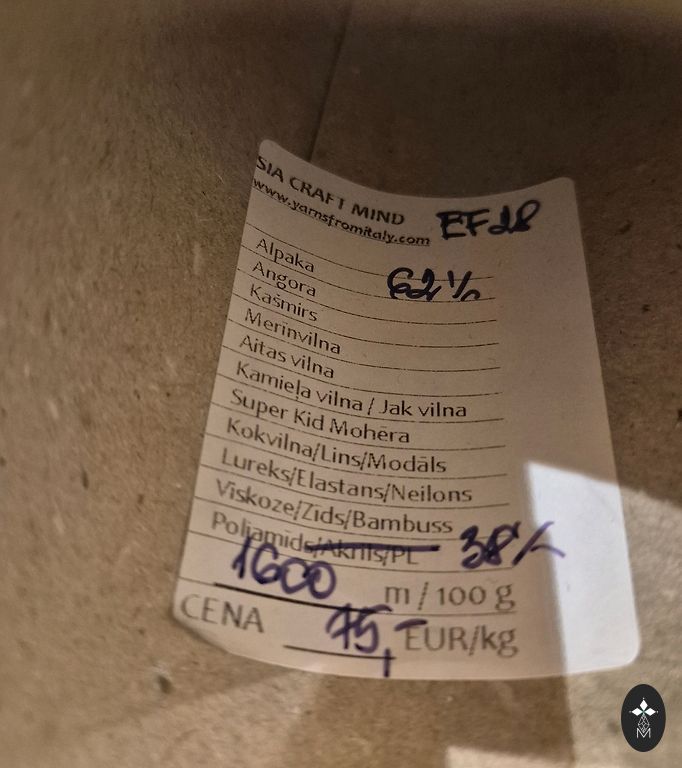 SIA CRAFT MIND
www.yarnsfromitaly.com EF28
Alpaka
Angora 62%
Kašmirs
Merinvilna
Aitas vilna
Kamieļa vilna / Jak vilna
Super Kid Mohēra
Kokvilna/Lins/Modāls
Lureks/Elastans/Neilons
Viskoze/Zīds/Bambuss
Poliamīds/Akrils/PL 38%
1600 m / 100 g
CENA 75,- EUR/kg
M